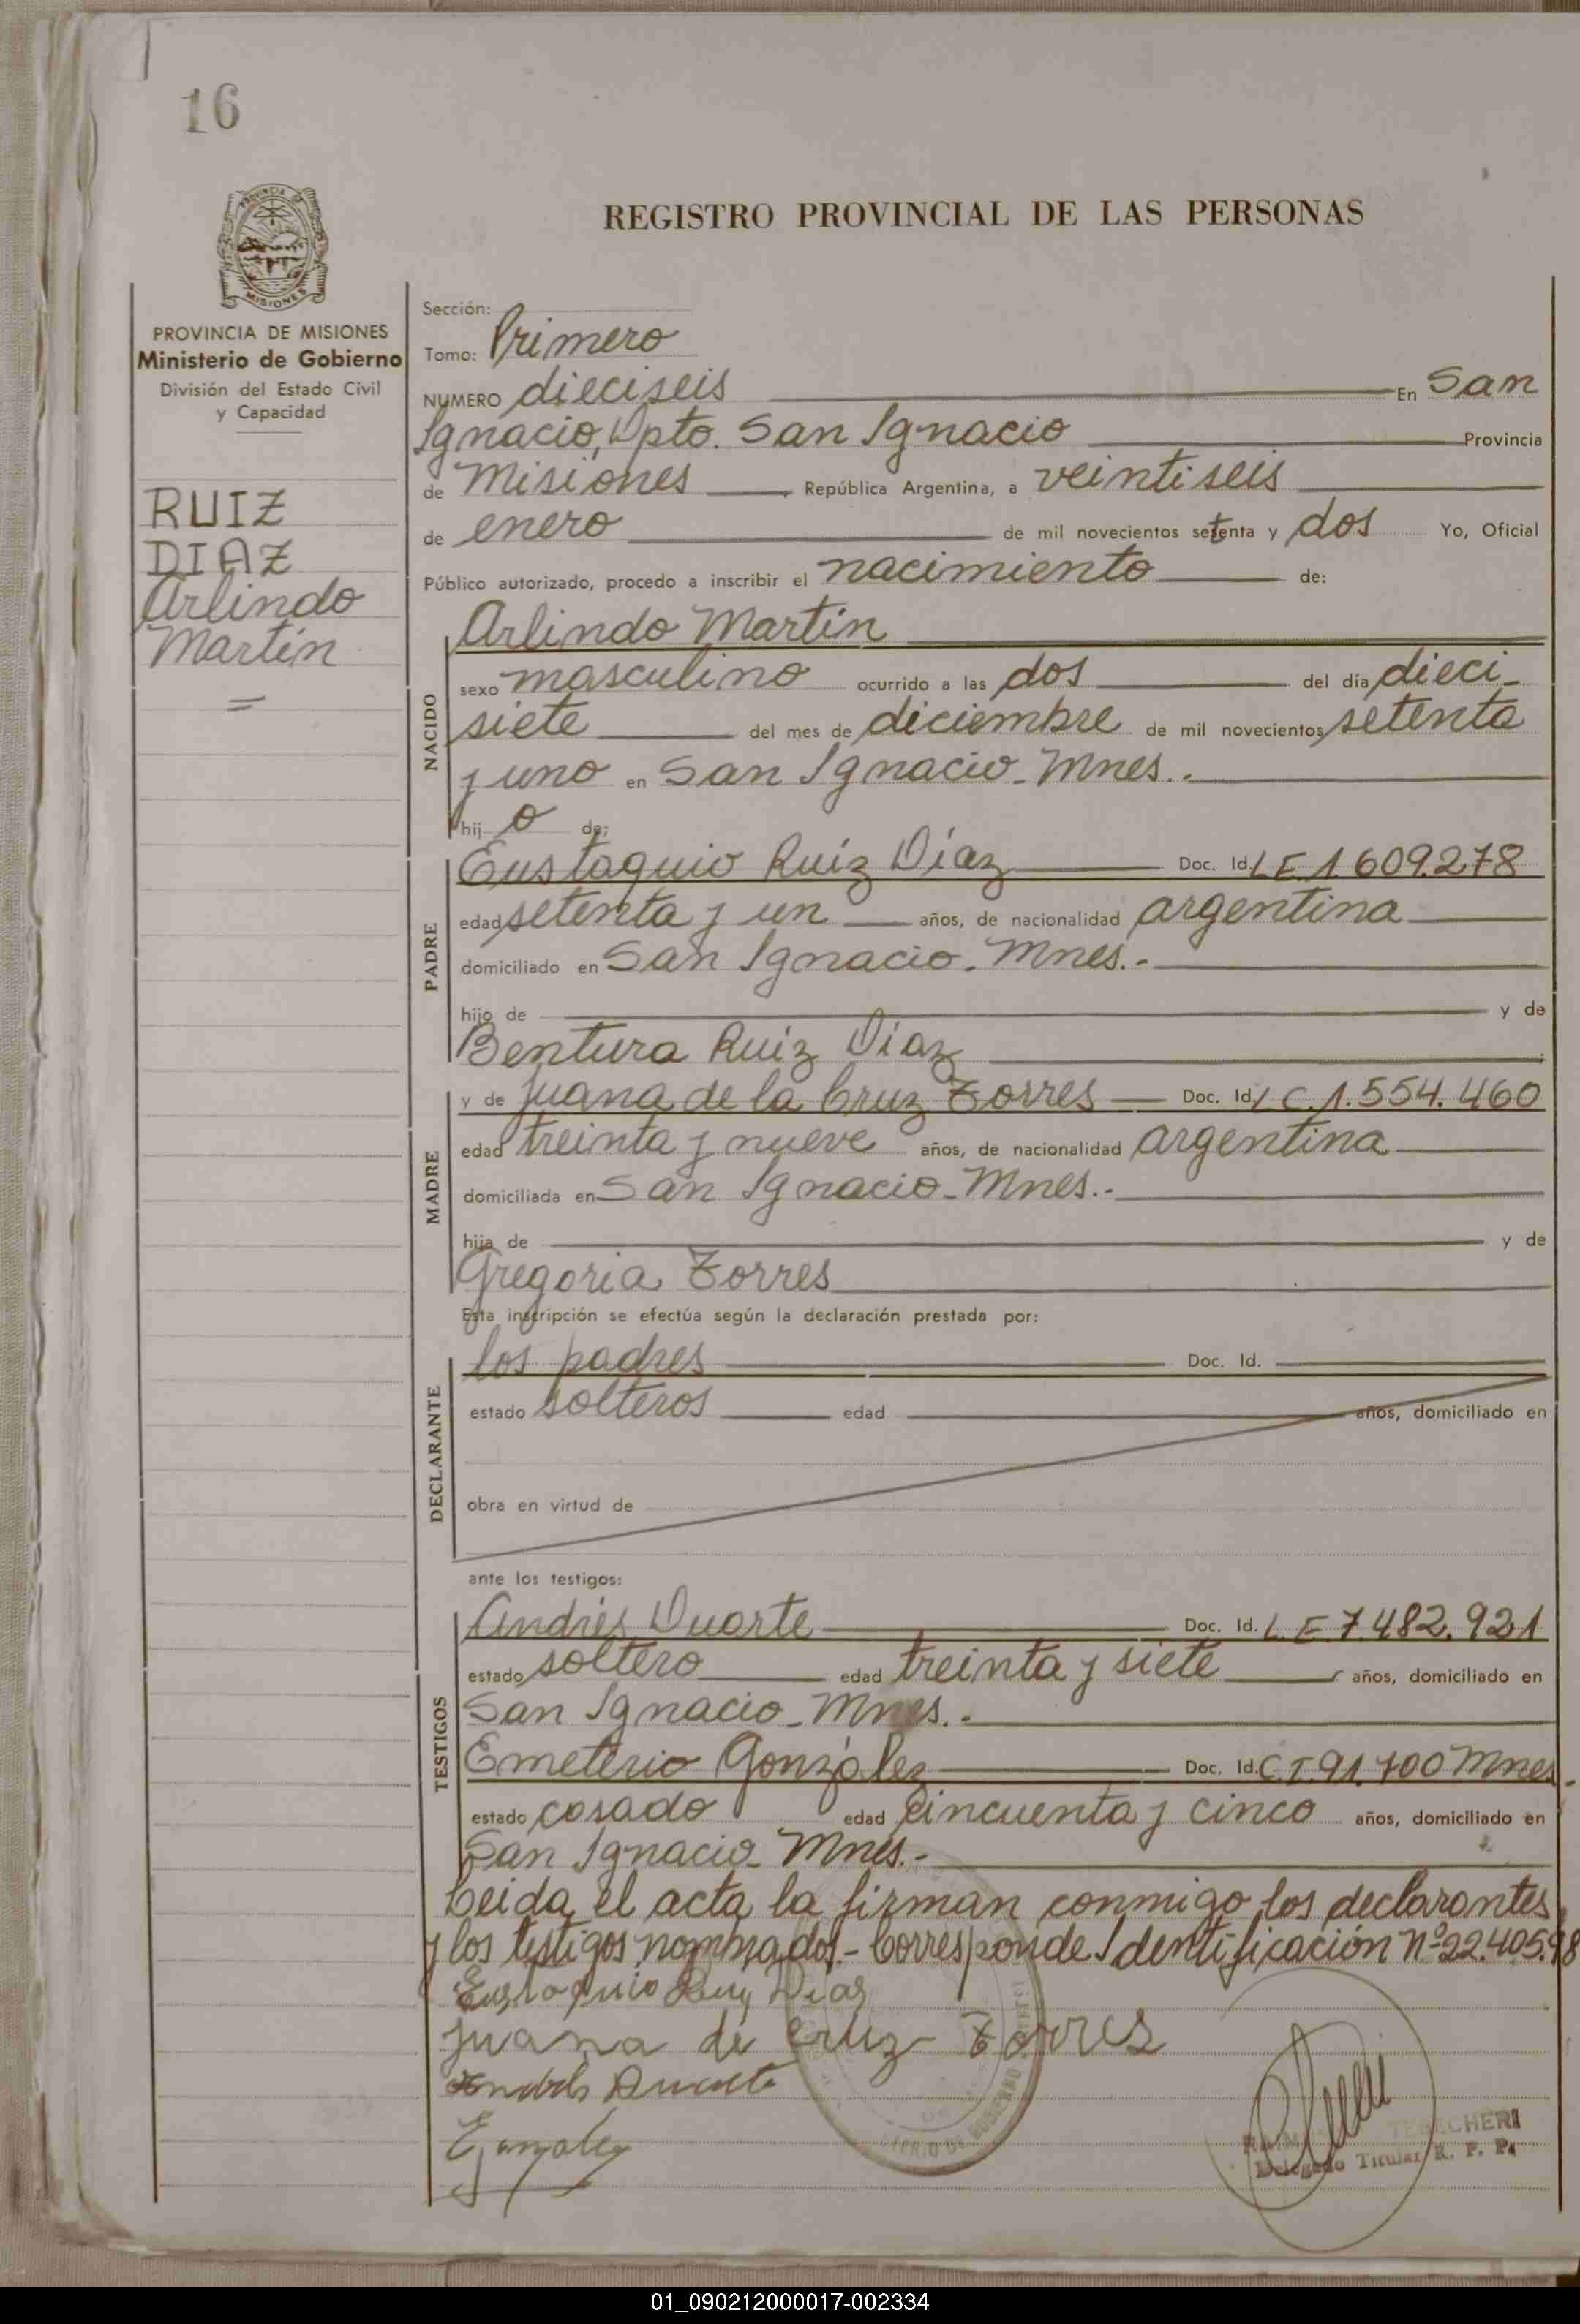 16
PROVINCIA DE
MISIONES
REGISTRO PROVINCIAL DE LAS PERSONAS
PROVINCIA DE MISIONES
Ministerio de Gobierno
División del Estado Civil
y Capacidad
RUIZ
DIAZ
Arlindo
Martín
Sección:
Tomo: Primero
NUMERO dieciseis En San
Ignacio, Dpto. San Ignacio Provincia
de Misiones, República Argentina, a veintiseis
de enero de mil novecientos setenta y dos Yo, Oficial
Público autorizado, procedo a inscribir el nacimiento de:
NACIDO
Arlindo Martín
sexo masculino ocurrido a las dos del día dieci-
siete del mes de diciembre de mil novecientos setenta
y uno en San Ignacio - Mnes.-
hij o de:
PADRE
Eustaquio Ruíz Díaz Doc. Id. L E. 1.609.278
edad setenta y un años, de nacionalidad argentina
domiciliado en San Ignacio - Mnes.-
hijo de y de
Bentura Ruíz Díaz
MADRE
y de Juana de la Cruz Torres Doc. Id. L C. 1.554.460
edad treinta y nueve años, de nacionalidad argentina
domiciliada en San Ignacio - Mnes.-
hija de y de
Gregoria Torres
Esta inscripción se efectúa según la declaración prestada por:
DECLARANTE
los padres Doc. Id.
estado solteros edad años, domiciliado en
obra en virtud de
ante los testigos:
TESTIGOS
Andrés Duarte Doc. Id. L. E. 7.482.921
estado soltero edad treinta y siete años, domiciliado en
San Ignacio - Mnes.-
Emeterio González Doc. Id. C.I. 91.700 Mnes.
estado casado edad cincuenta y cinco años, domiciliado en
San Ignacio - Mnes.-
Leida el acta la firman conmigo los declarantes
y los testigos nombrados.- Corresponde Identificación Nº 22.405.98
Eustaquio Ruiz Diaz
Juana de Cruz Torres
Andrés Duarte
E gonzalez
TEBECHERI
Delegado Titular R. P. P.
01_090212000017-002334